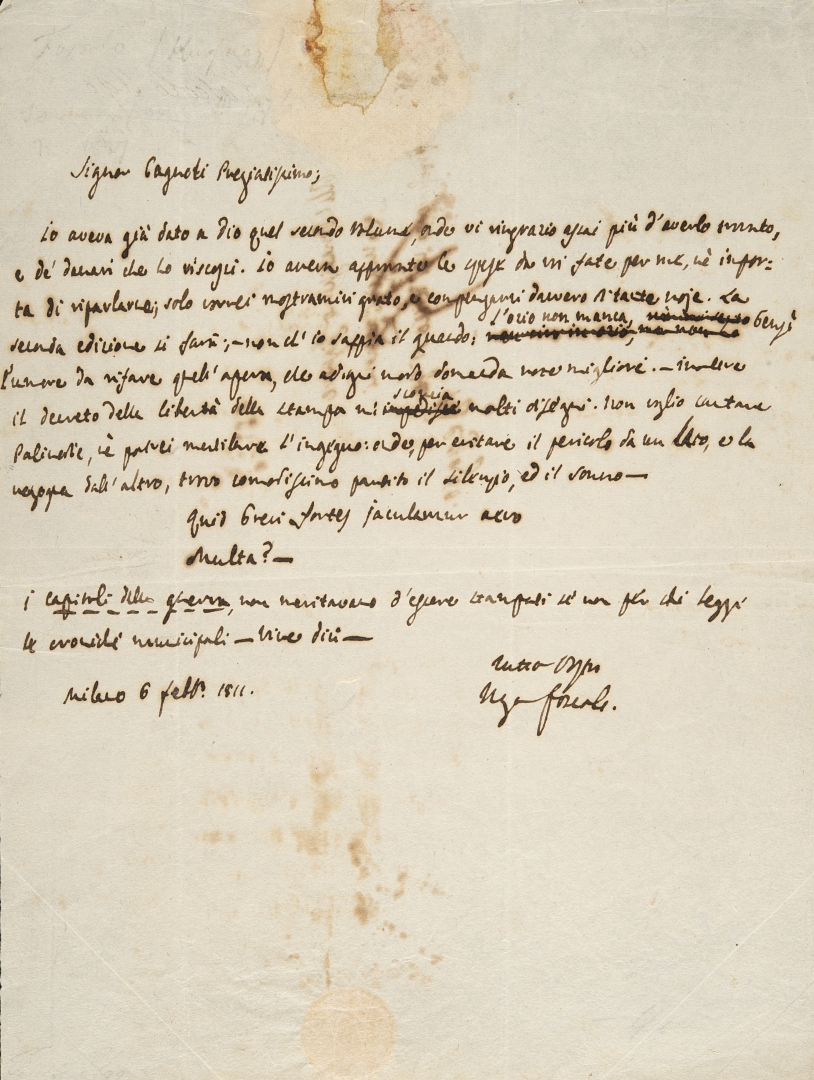 Signor Cagnoli Pregiatissimo;
Io aveva già dato a dio quel secondo volume, onde vi ringrazio assai più d'averlo
e de' danari che lo riscossi. Io aveva le spese che mi fate per me, nè impor=
ta di riparlarne; solo vorrei mostrarmivi grato, e compensarvi davvero di tante noje. La
seconda edizione si farà; – non ch'io sappia il quando; L'ozio non manca, bensì
l'umore da rifare quell'opera, che ad ogni modo domanda note migliori. – Inoltre
il decreto della libertà della stampa mi storpia molti disegni. Non voglio cantare
Palinodie, nè potrei mutilare l'ingegno: onde, per evitare il pericolo da un lato, e la
vergogna dall'altro, trovo comodissimo partito il silenzio, ed il sonno —
Quid brevi fortes jaculamur aevo
Multa? —
I capitoli della guerra, non meritavano d'essere stampati se non per chi leggi
le croniche municipali —
Milano 6 febb.° 1811.
tutto
Ugo Foscolo.